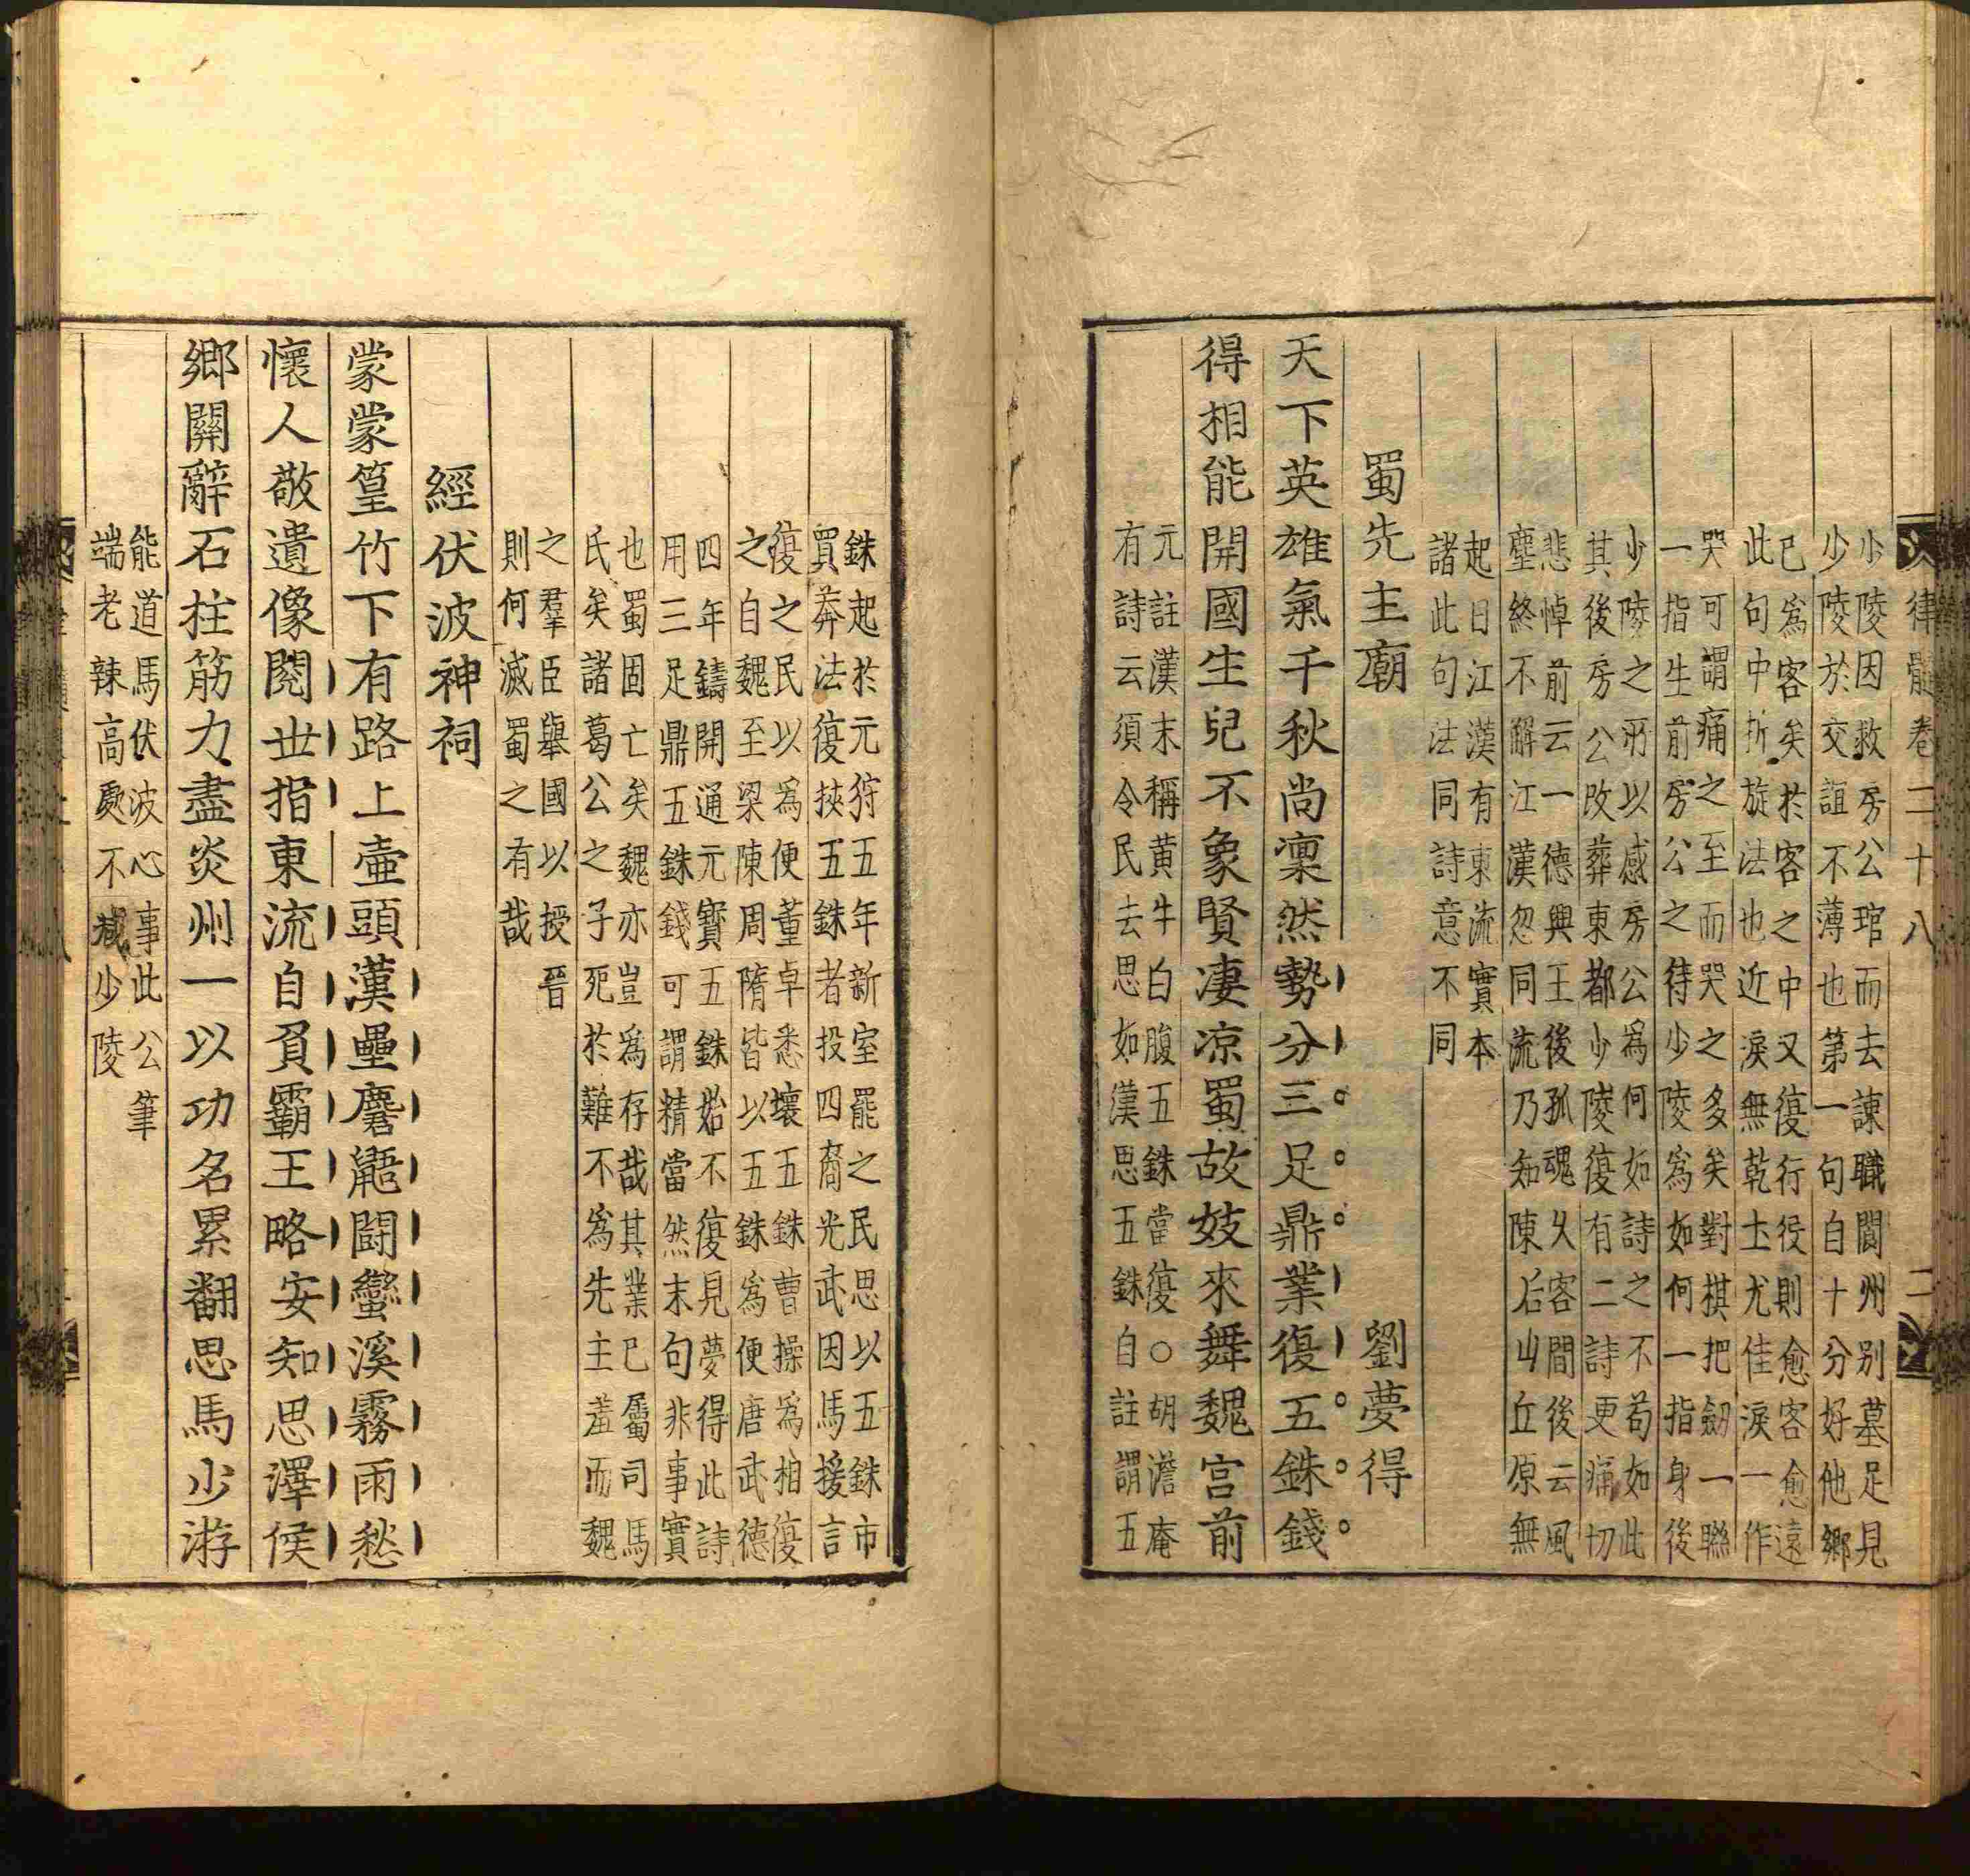 律髓卷二十八 二
少陵因救房公琯而去諫職閬州别墓足見
少陵於交誼不薄也第一句自十分好他鄉
已爲客矣於客之中又復行役則愈客愈遠
此句中折旋法也近淚無乾土尤佳淚一作
哭可謂痛之至而哭之多矣對棋把劒一聯
一指生前房公之待少陵爲如何一指身後
少陵之所以感房公爲何如詩之不苟如此
其後房公改葬東都少陵復有二詩更痛切
悲悼前云一德興王後孤魂久客間後云風
塵終不解江漢忽同流乃知陳后山丘原無
起日江漢有東流實本
諸此句法同詩意不同
蜀先主廟 劉夢得
天下英雄氣千秋尚凛然勢分三足鼎業復五銖錢
得相能開國生兒不象賢凄凉蜀故妓來舞魏宫前
元註漢末稱黄牛白腹五銖當復○胡澹庵
有詩云須令民去思如漢思五銖自註謂五
銖起於元狩五年新室罷之民思以五銖市
買莽法復挾五銖者投四裔光武因馬援言
復之民以爲便董卓悉壞五銖曹操爲相復
之自魏至梁陳周隋皆以五銖爲便唐武德
四年鑄開通元寶五銖始不復見夢得此詩
用三足鼎五銖錢可謂精當然末句非事實
也蜀固亡矣魏亦豈爲存哉其業已屬司馬
氏矣諸葛公之子死於難不爲先主羞而魏
之羣臣舉國以授晉
則何滅蜀之有哉
經伏波神祠
蒙蒙篁竹下有路上壷頭漢壘麏鼯鬪蠻溪霧雨愁
懷人敬遺像閱世指東流自負霸王略安知思澤侯
鄉關辭石柱筋力盡炎州一以功名累翻思馬少游
能道馬伏波心事此公筆
端老辣高處不減少陵